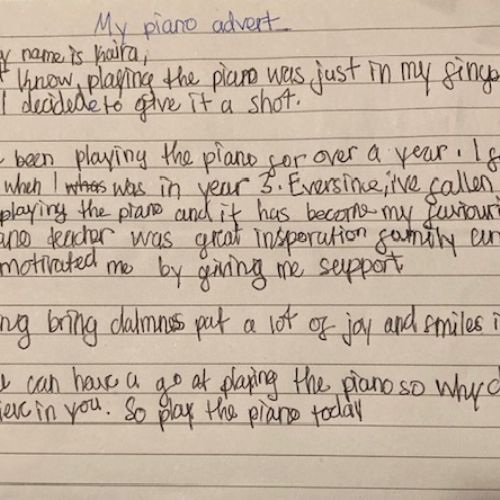 My piano advert
y name is Kaira,
t know, playing the piano was just in my finge
I decidede to give it a shot.
been playing the piano for over a year. I
when I was in year 3. Eversince, i've fallen
playing the piano and it has become my
ano teacher was great insperation family
motivated me by giving me seupport
ng bring calmnes put a lot of joy and smiles i
can have a go at playing the piano so why
ieve in you. So play the piano today